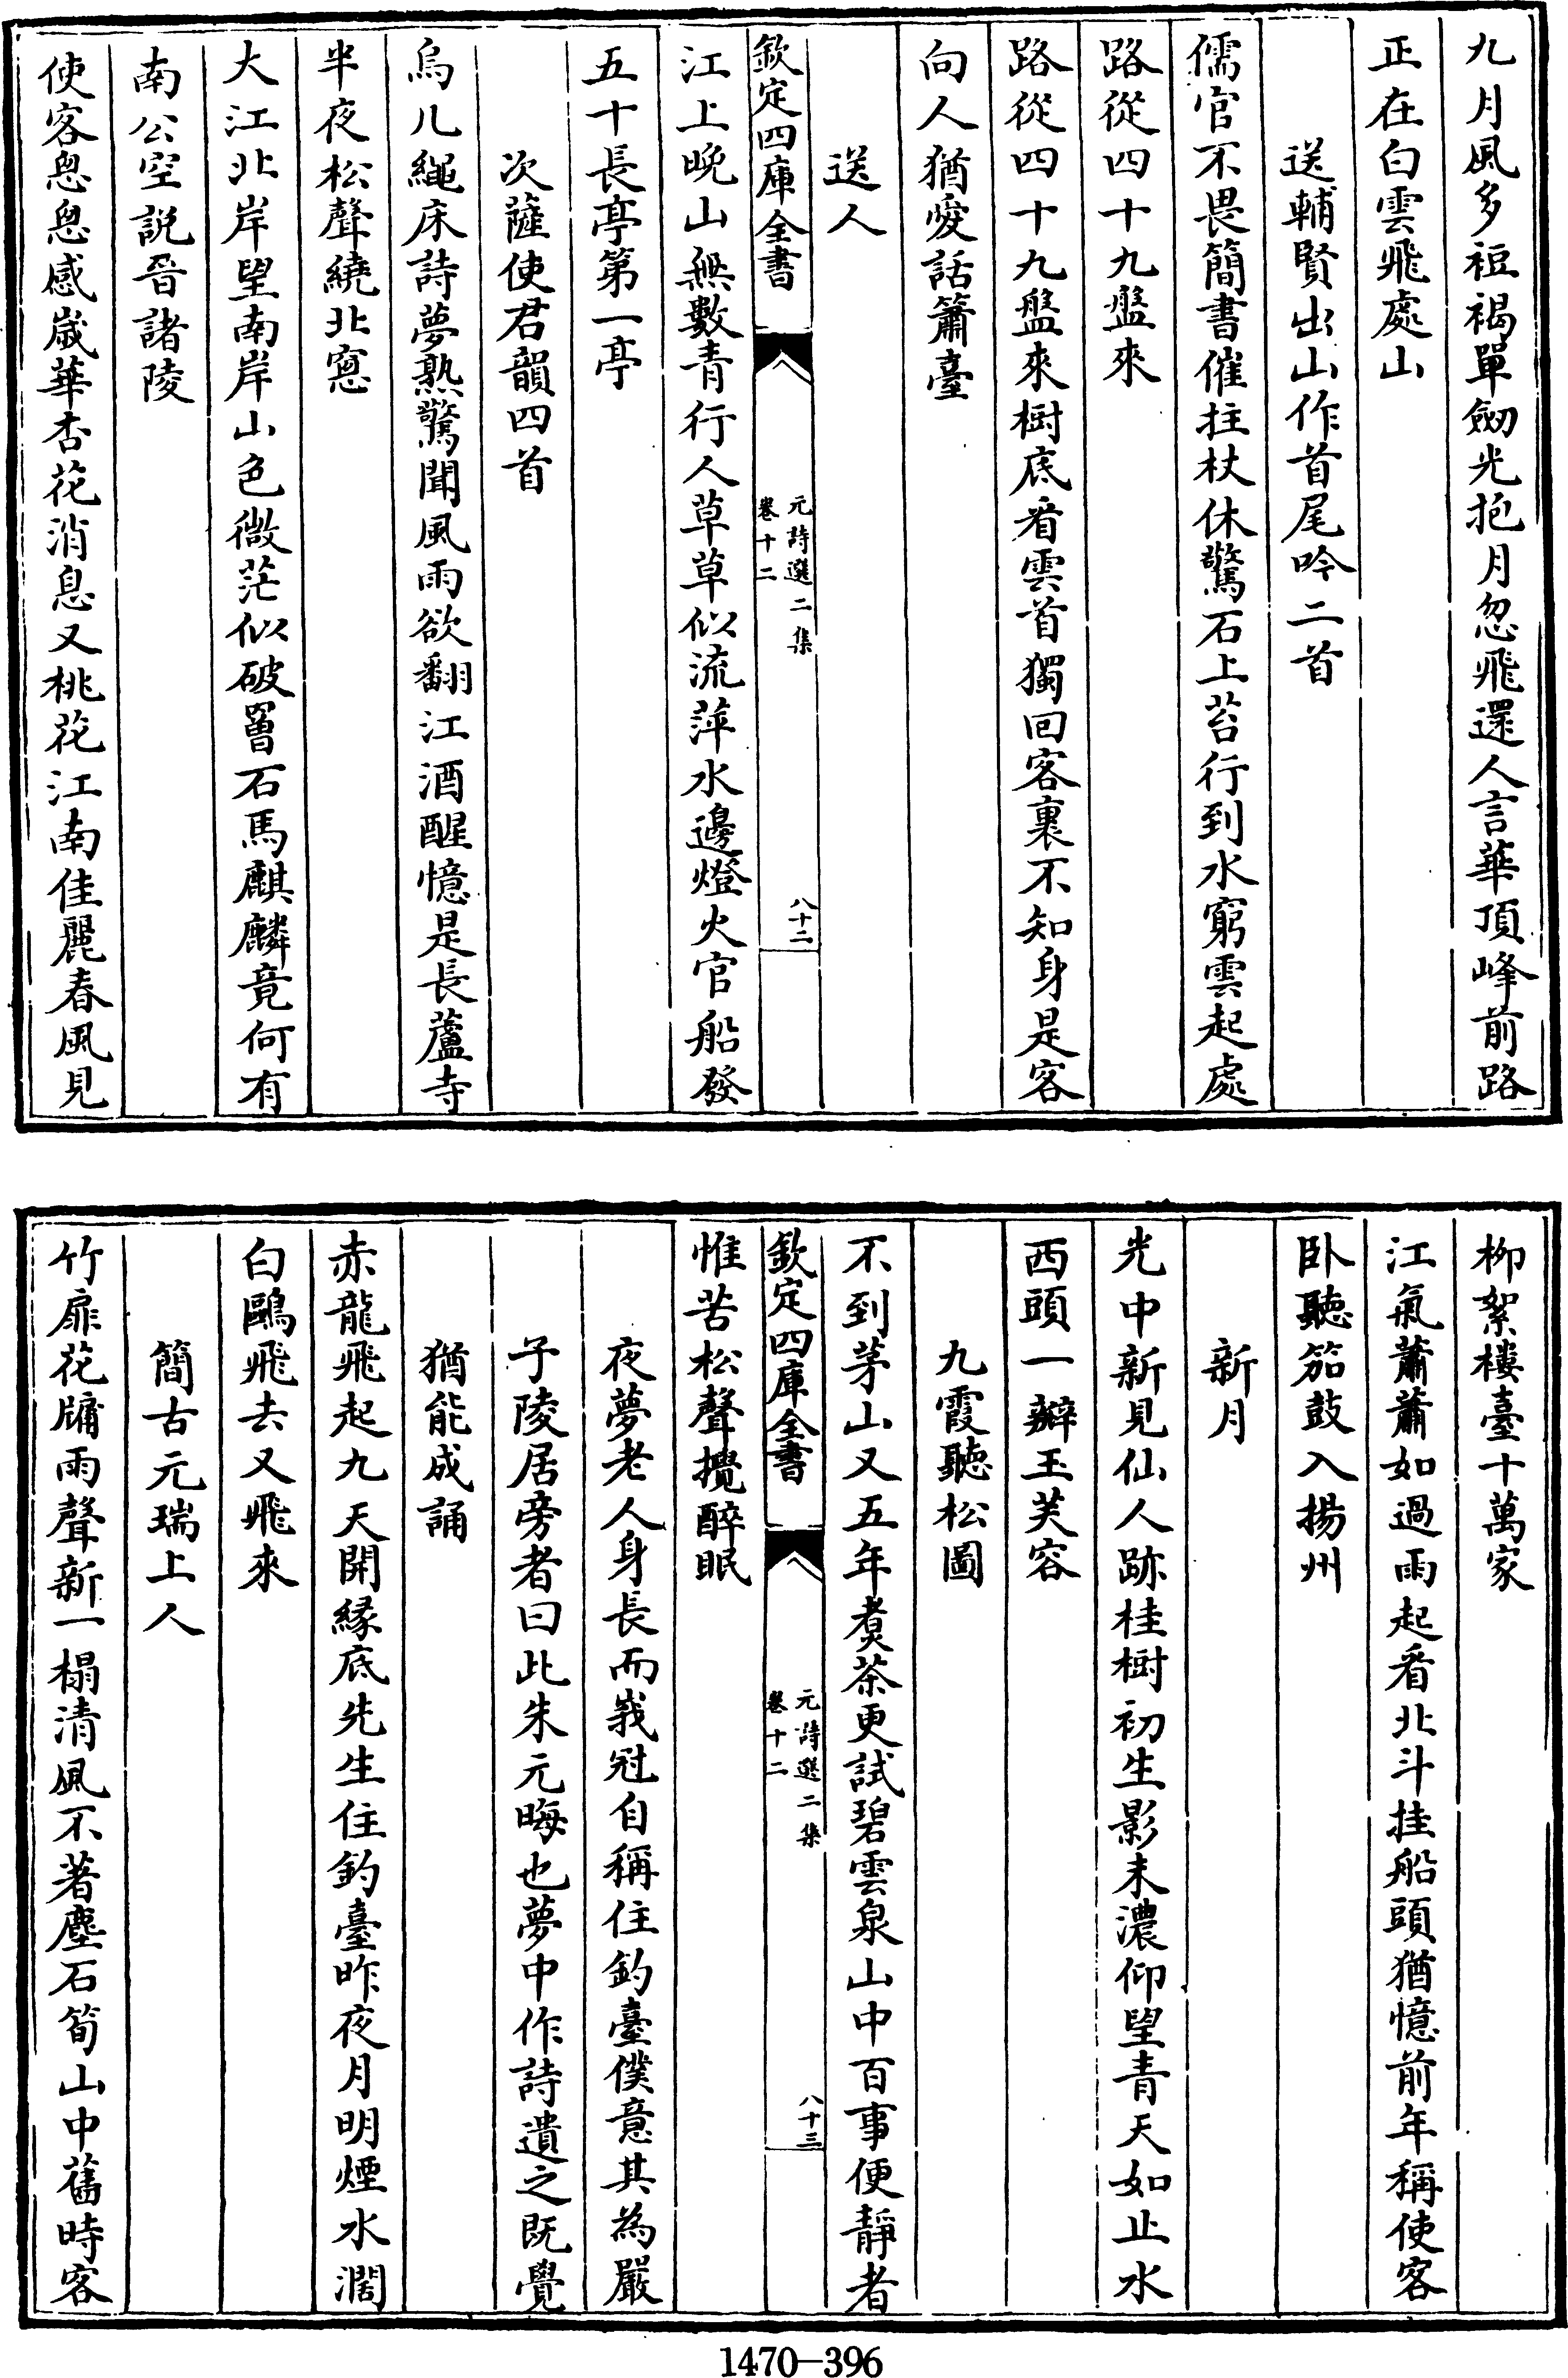 九月風多裋褐單劒光抱月忽飛還人言華頂峰前路
正在白雲飛處山
送輔賢出山作首尾吟二首
儒官不畏簡書催拄杖休驚石上苔行到水窮雲起處
路從四十九盤來
路從四十九盤來樹底看雲首獨回客裏不知身是客
向人猶愛話簫臺
送人
欽定四庫全書
元詩選二集
卷十二
八十二
江上晚山無數青行人草草似流萍水邊燈火官船發
五十長亭第一亭
次薩使君韻四首
烏几繩床詩夢熟驚聞風雨欲翻江酒醒憶是長蘆寺
半夜松聲繞北窻
大江北岸望南岸山色微茫似破罾石馬麒麟竟何有
南公空説晉諸陵
使客悤悤感歲華杏花消息又桃花江南佳麗春風見
柳絮樓臺十萬家
江氣蕭蕭如過雨起看北斗挂船頭猶憶前年稱使客
卧聽笳鼓入揚州
新月
光中新見仙人跡桂樹初生影未濃仰望青天如止水
西頭一瓣玉芙容
九霞聽松圖
不到茅山又五年煑茶更試碧雲泉山中百事便靜者
欽定四庫全書
元詩選二集
卷十二
八十三
惟苦松聲攪醉眠
夜夢老人身長而峩冠自稱住釣臺僕意其為嚴
子陵居旁者曰此朱元晦也夢中作詩遺之既覺
猶能成誦
赤龍飛起九天開緣底先生住釣臺昨夜月明煙水濶
白鷗飛去又飛來
簡古元瑞上人
竹扉花牖雨聲新一榻清風不著塵石筍山中舊時客
1470-396